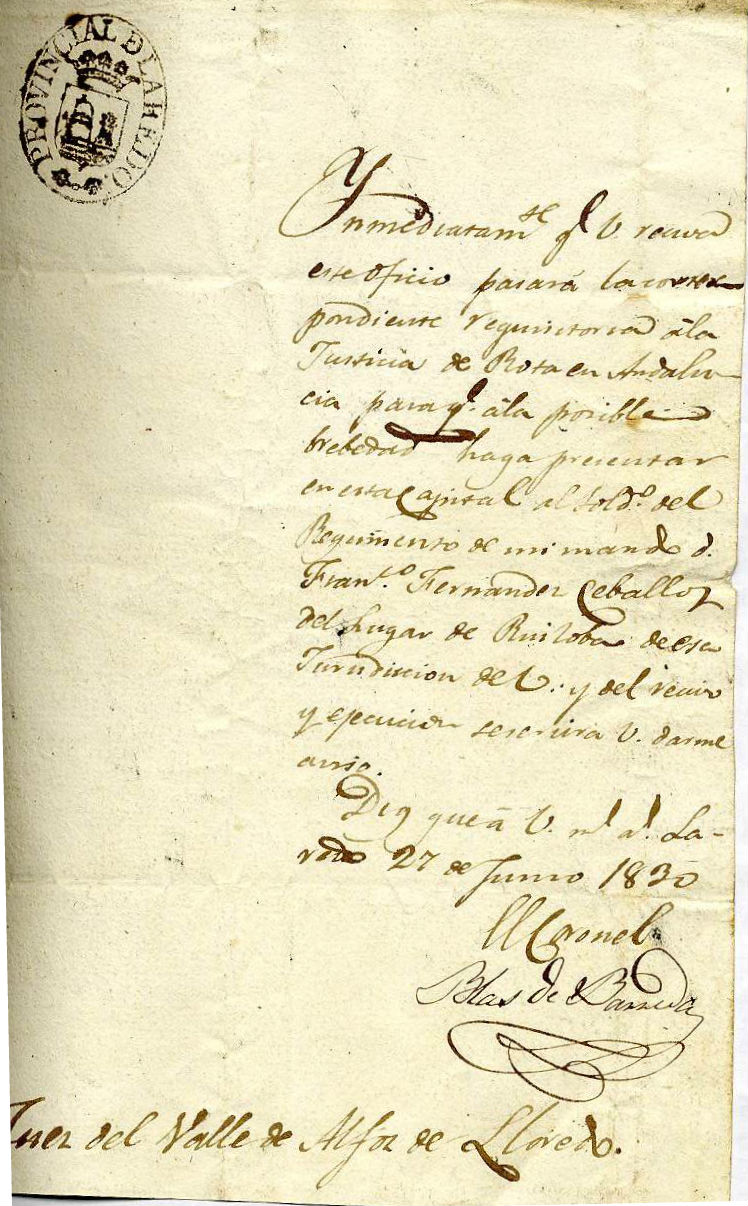 PROVINCIAL D LAREDO.
Ynmediatam.te q.e V. reciva
este oficio pasará la corres
pondiente requisitoria âla
Justicia de Rota en Andalu-
cia para q.e âla posible
brebedad haga presentar
en esta Capital al Sold.o del
Regimiento de mi mando d.
Fran.co Fernandez Ceballoz
del Lugar de Ruiloba de esa
Jurisdiccion de V. y del recivo
y ejecucion se servira V. darme
aviso.
Dios gue â V. m.s a.s La-
redo 27 de Junio 1830
El Coronel
Blas de Barreda
Juez del Valle de Alfoz de Lloredo.